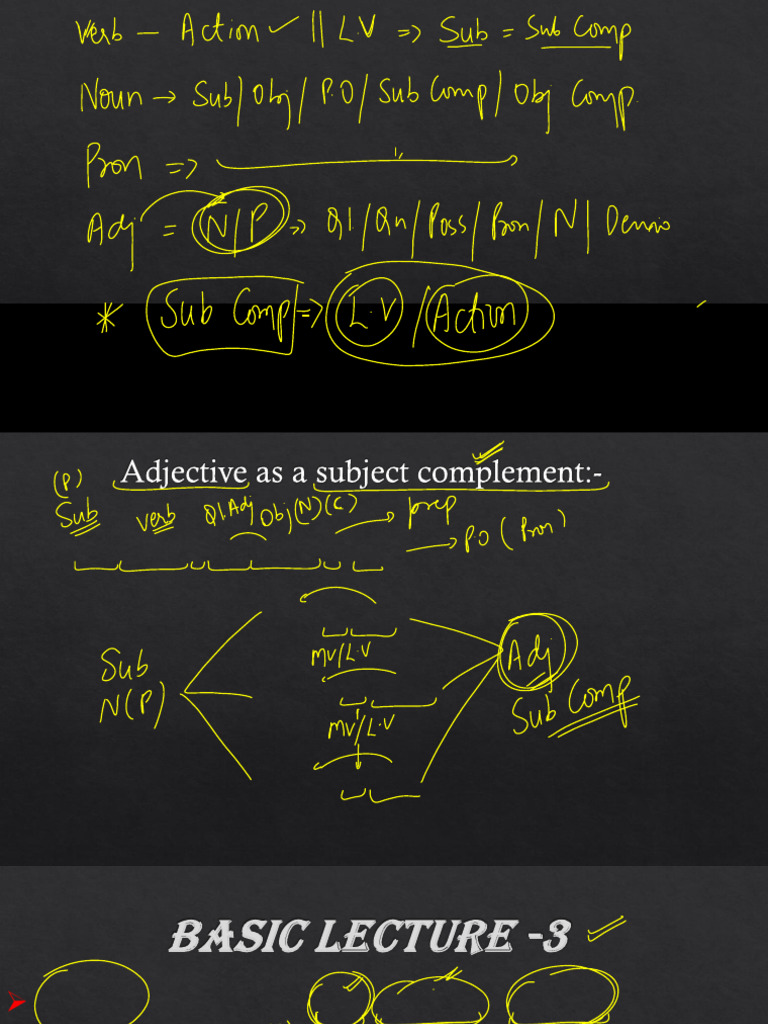 Verb — Action ✓ || L.V => Sub = Sub Comp
Noun → Sub/Obj/P.O/Sub Comp/Obj Comp.
Pron =>
Adj = N/P => Ql/Qn/Poss/Pron/N/Demo
* Sub Comp => L.V/Action
Adjective as a subject complement:-
(P)
Sub verb Ql Adj Obj(N)(C) → prep
→ P.O (Pron)
MV/L.V
Sub Adj
N(P) Sub Comp
MV/L.V
BASIC LECTURE -3